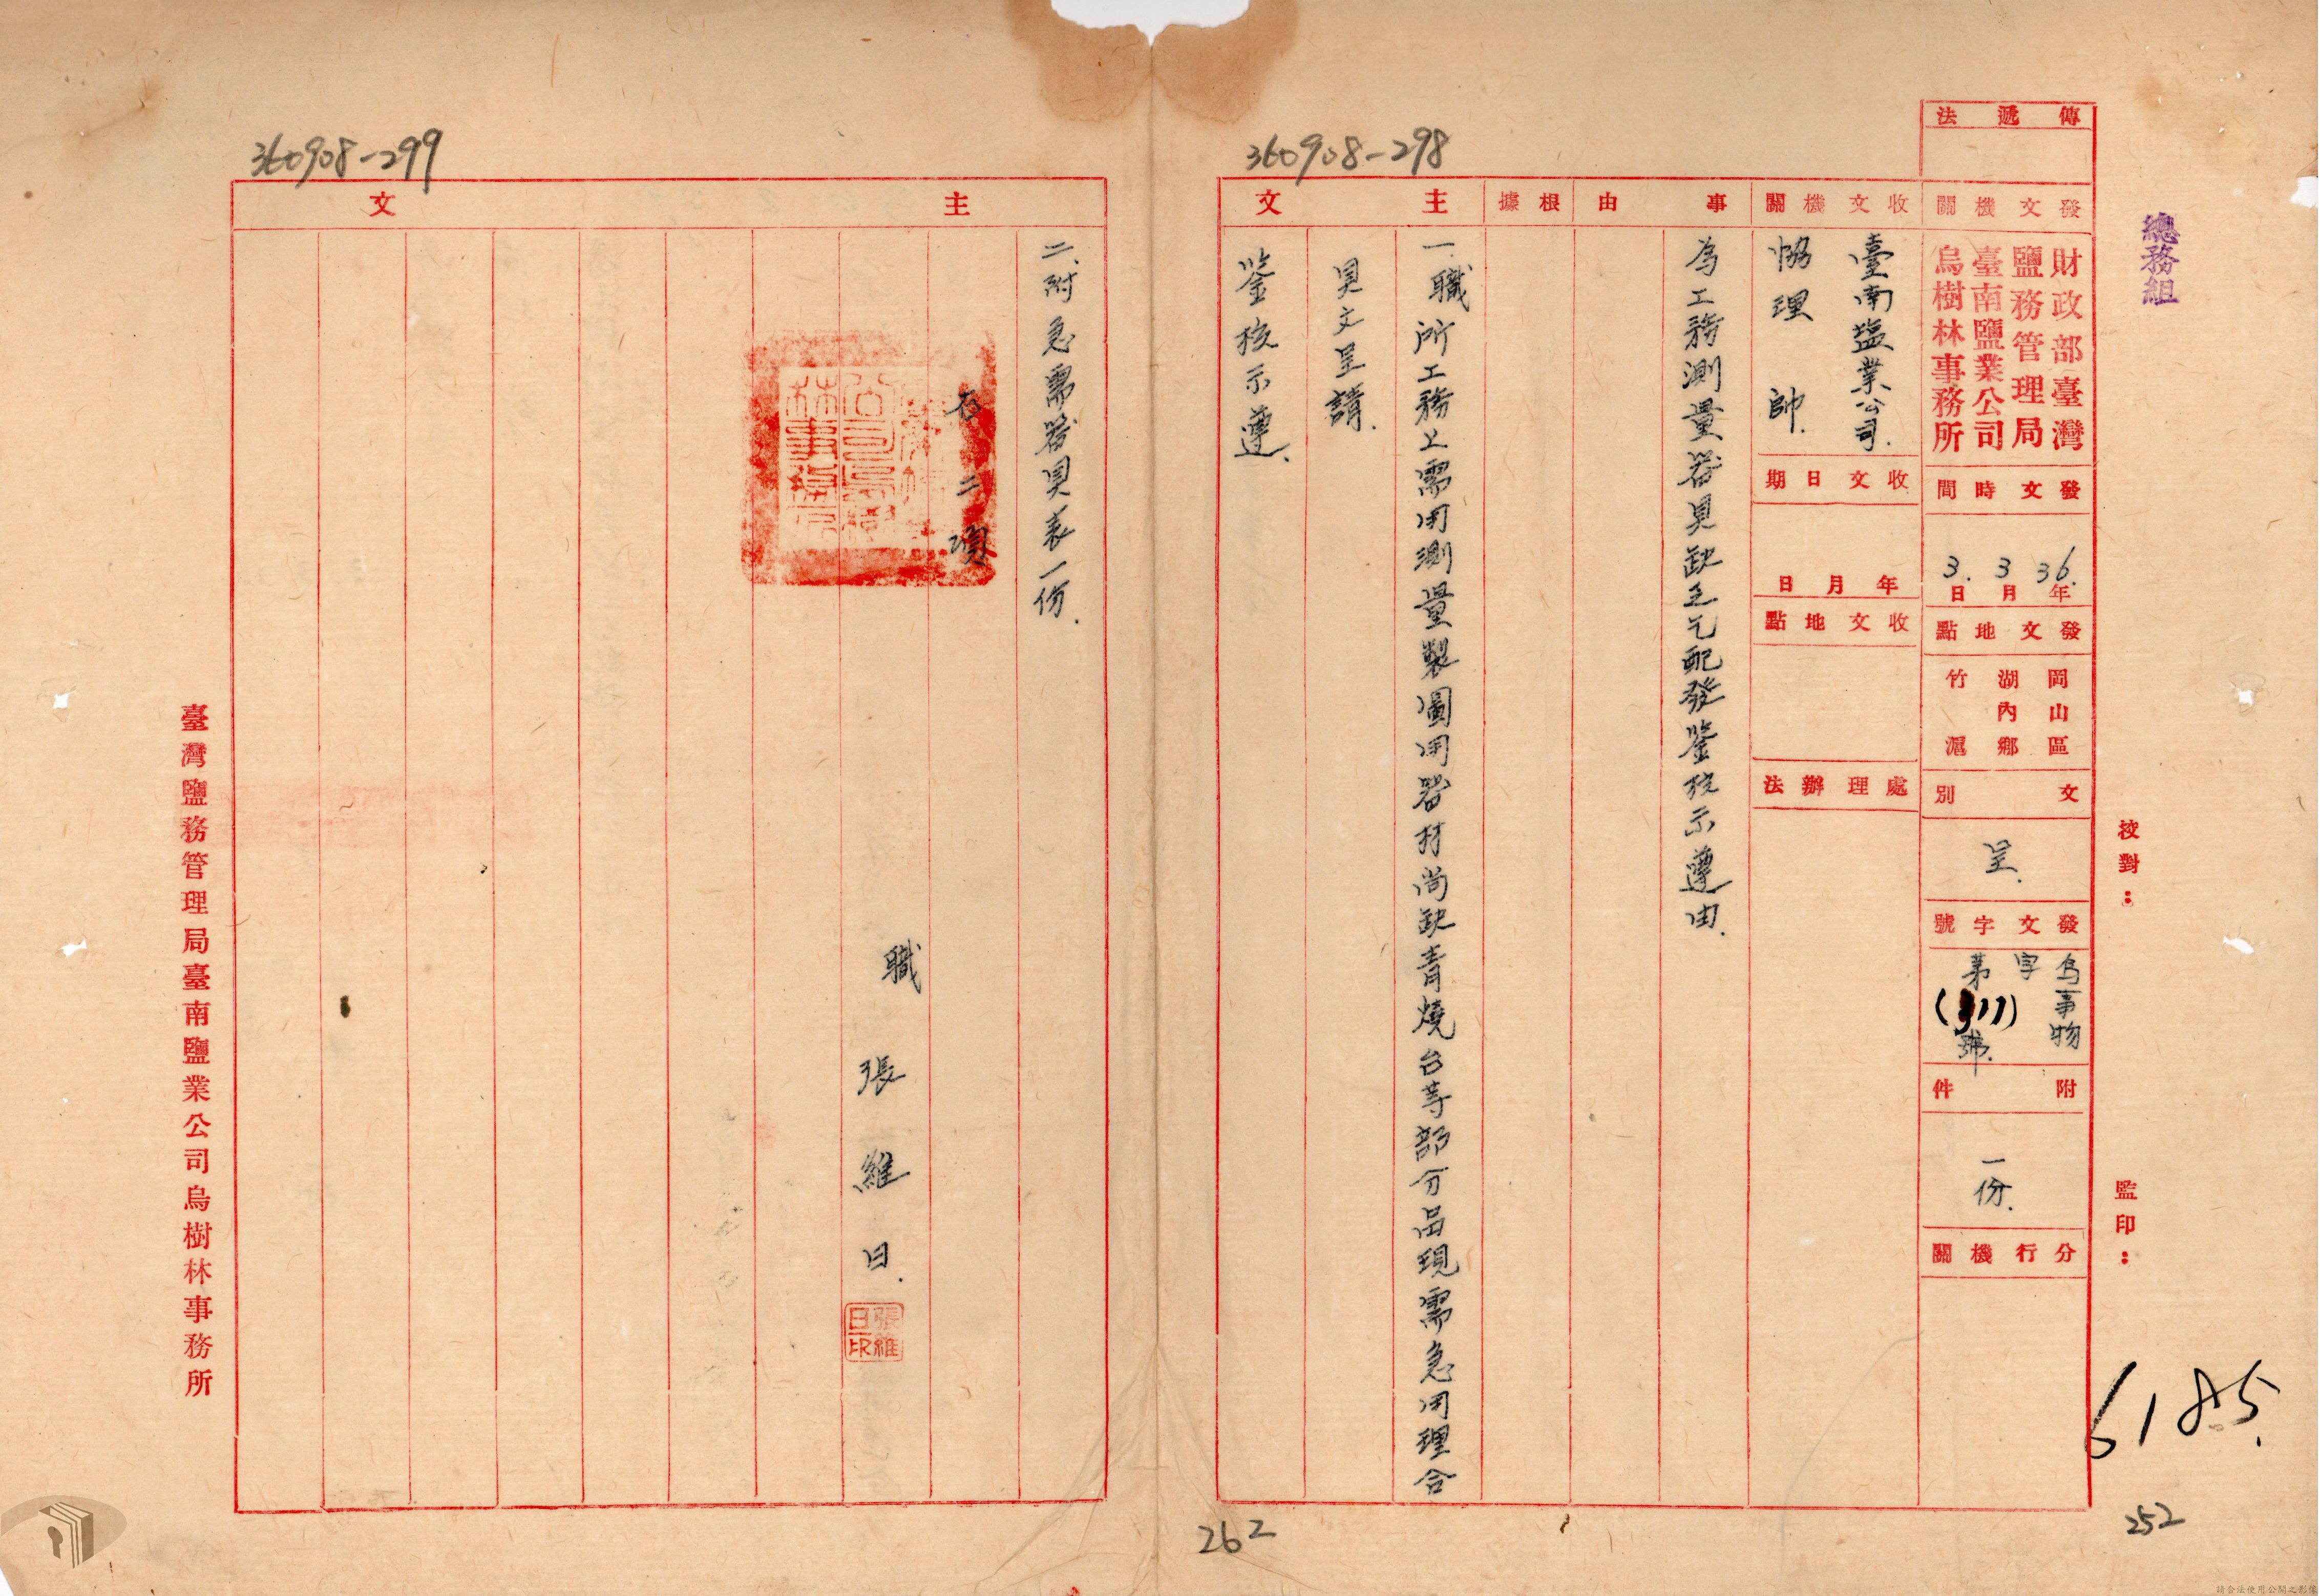 總務組
校對：
監印：
6185.
252
傳遞法
發文機關
財政部臺灣
鹽務管理局
臺南鹽業公司
烏樹林事務所
發文時間
36.年3月3.日
發文地點
岡山區
湖內鄉
竹滬
文別
呈.
發文字號
烏事物
字
第
號.
附件
一份.
分行機關
收文機關
臺南塩業公司.
協理 帥.
收文日期
年月日
收文地點
處理辦法
事由
為工務測量器具缺乏乞配發鉴核示遵由.
根據
主文
360908-298
一.職所工務上需用測量製圖用器材尚缺青燒台等部分品現需急用理合
具文呈請.
鉴核示遵.
262
360908-299
主文
二.附急需器具表一份.
右二項
職 張維日.
張維日印
臺灣鹽務管理局臺南鹽業公司烏樹林事務所
請合法使用公開之影像